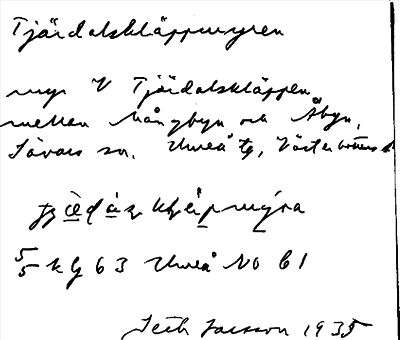 Tjärdalskläppmyren
myr V Tjärdalskläppen
mellan Långbyn och Åbyn,
Sävars sn. Umeå tg, Västerbottens l.
5/5 kg 63 Umeå NO 61
Seth Larsson 1935